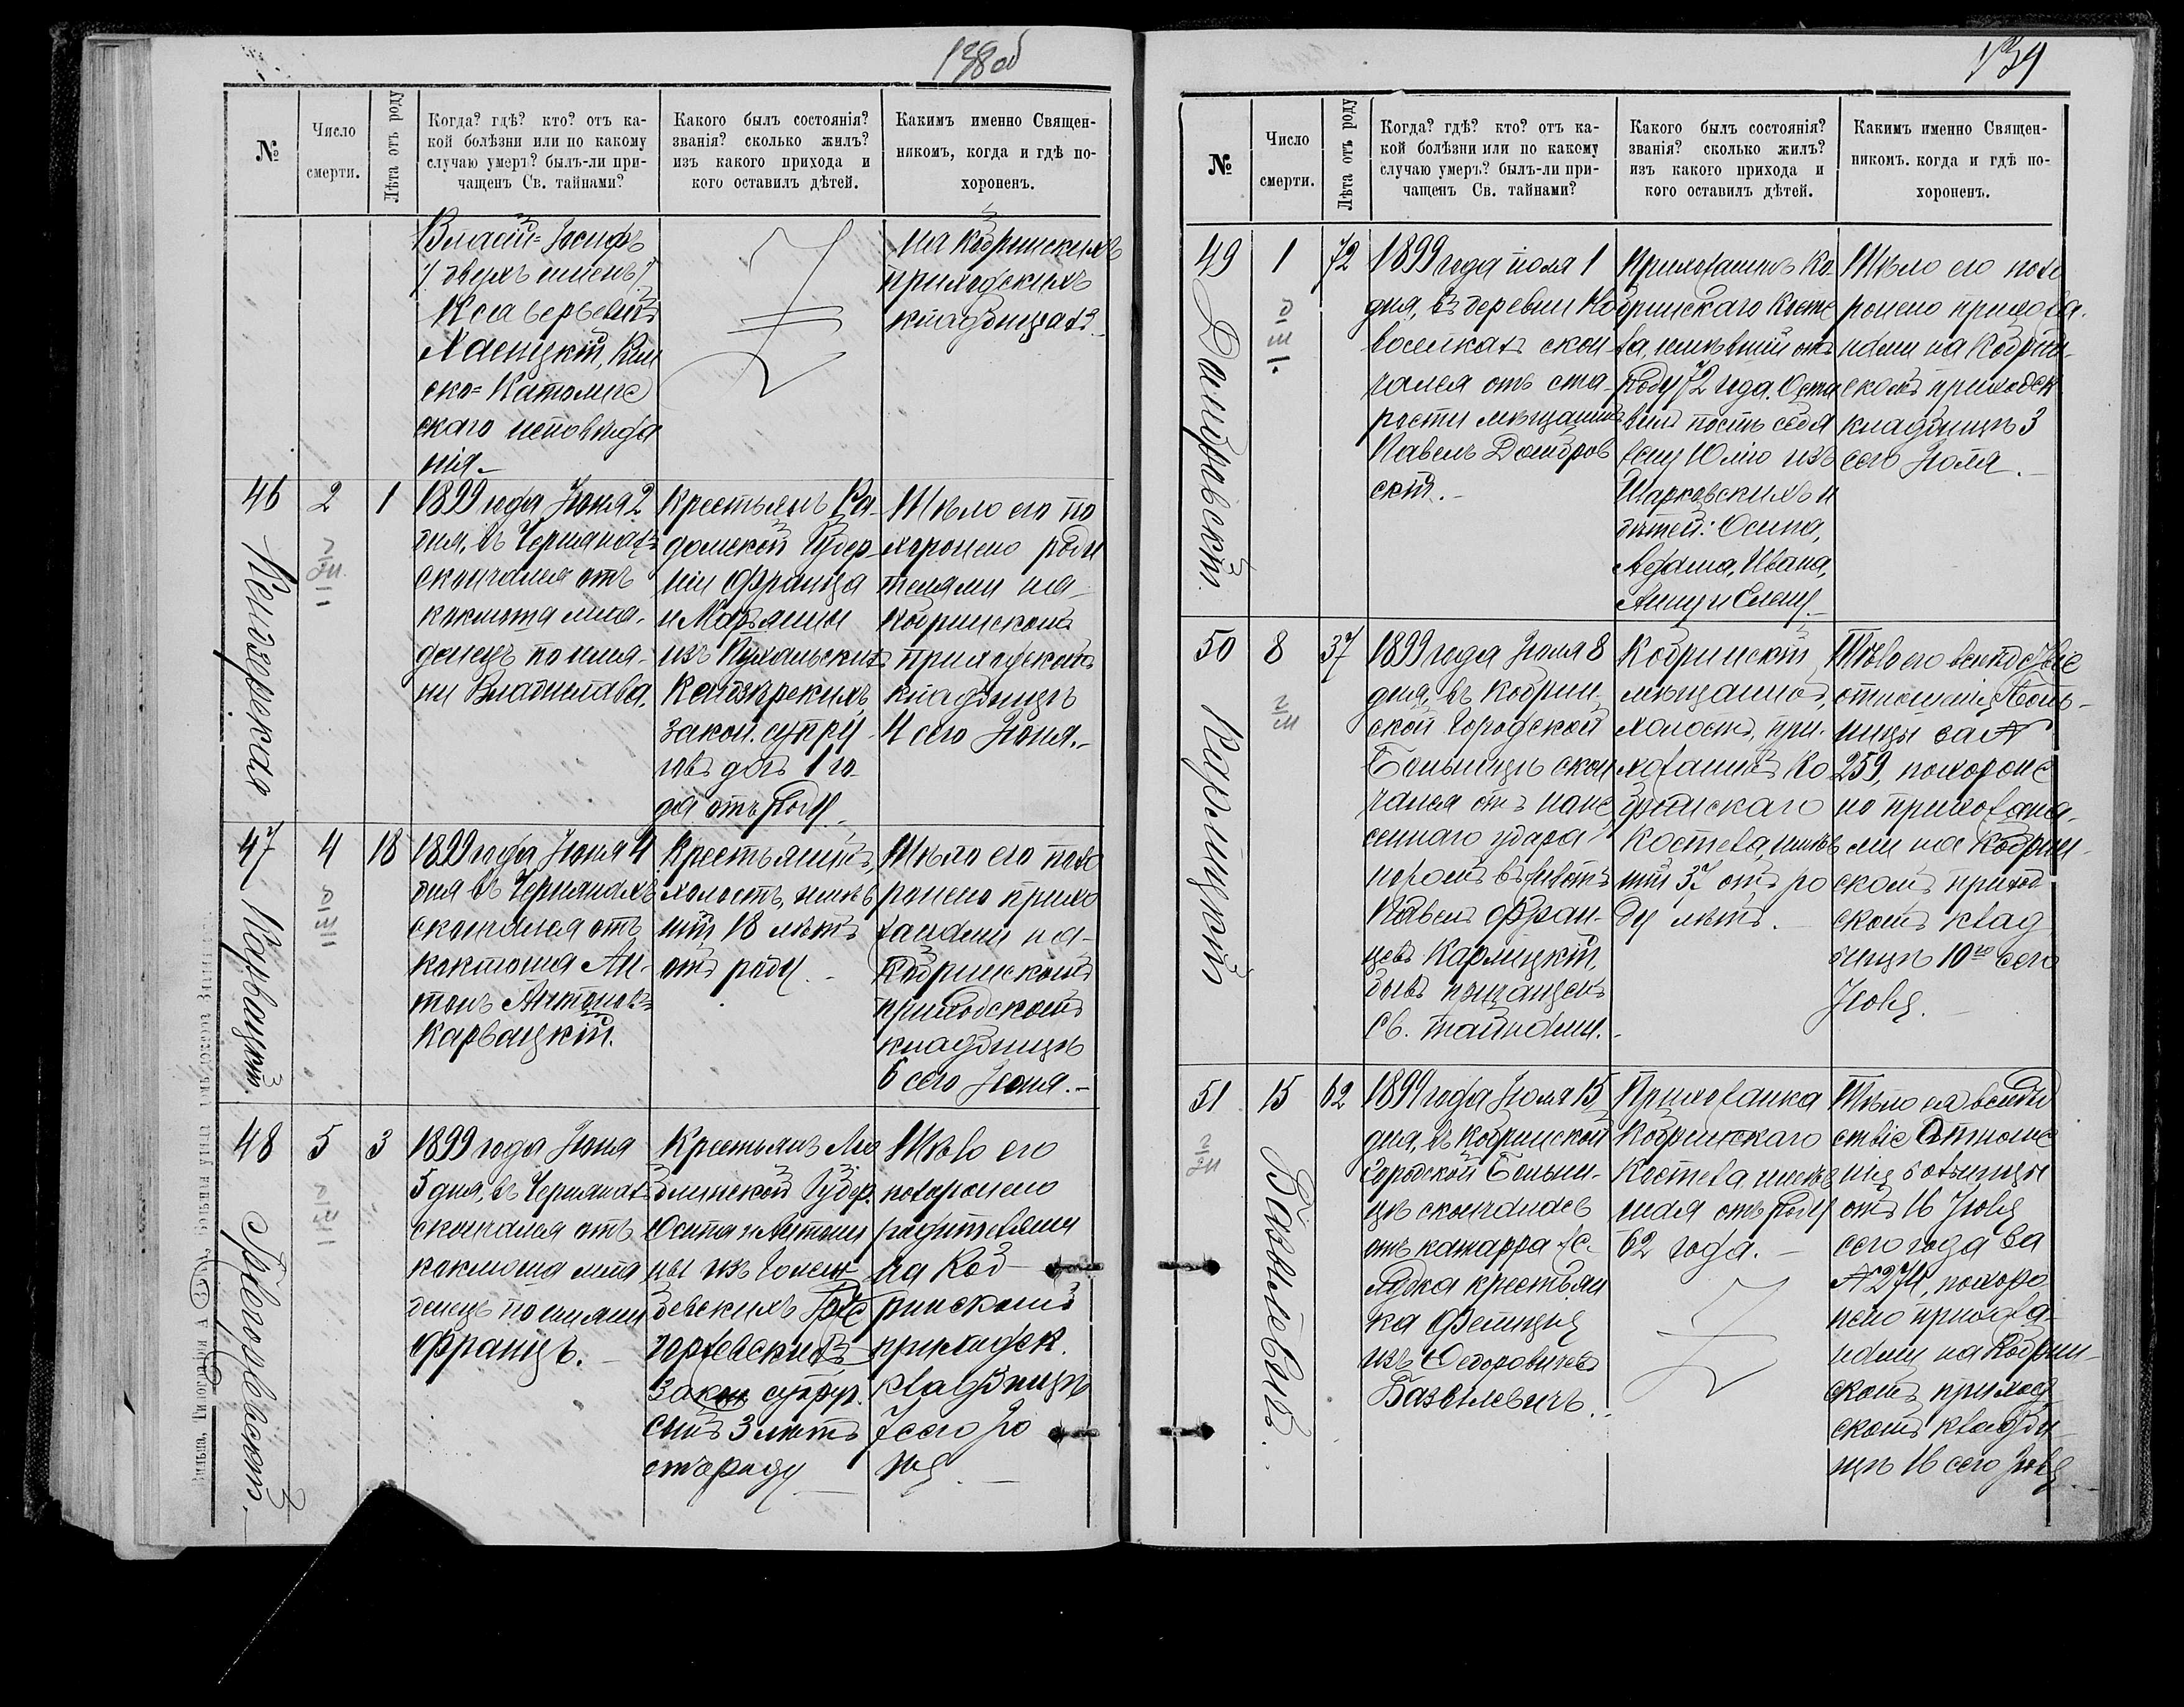 138об
№
Число
смерти.
Лѣта отъ роду
Когда? гдѣ? кто? отъ ка-
кой болѣзни или по какому
случаю умеръ? былъ-ли при-
чащенъ Св. тайнами?
Какого былъ состоянія?
званія? сколько жилъ?
изъ какого прихода и
кого оставилъ дѣтей.
Какимъ именно Священ-
никомъ, когда и гдѣ по-
хороненъ.
Іосифъ
/ двухъ именъ /
Ксаверьевичъ
ско=Католиче
скаго исповѣда
нія.
на Кобринскихъ
приходскихъ
кладбищахъ.
46
2
1
Кейзерская
1899 года Іюня 2
дня, въ
скончался отъ
коклюша мла-
денецъ по име-
ни Владислава.
Крестьянъ Ра-
домской Губер-
ніи Франца
и Марьянны
изъ
закон. супру-
говъ дочь 1 го-
да отъ роду.
Тѣло его по
хоронено роди
телями на
Кобринскомъ
приходскомъ
кладбищѣ
4 сего Іюня.
47
4
18
Карвацкій.
1899 года Іюня 4
дня въ
скончался отъ
коклюша Ан-
тонъ Антоновъ
Карвацкій.
Крестьянинъ,
холостъ, имѣв
шій 18 лѣтъ
отъ роду.
Тѣло его похо
ронено прихо
жанами на-
Кобринскомъ
приходскомъ
кладбищѣ
6 сего Іюня.
48
5
3
1899 года Іюня
5 дня, въ
скончался отъ
коклюша мла
денецъ по имени
Францъ.
Крестьянъ Лю
блинской Губер.
Осипа и Антони
ны изъ
закон супруг.
сынъ 3 лѣтъ
отъ роду
Тѣло его
похоронено
родителями
на Коб-
ринскомъ
приходск.
кладбищѣ
7 сего Ію
ня.
Вильна, Типографія
139
№
Число
смерти.
Лѣта отъ роду
Когда? гдѣ? кто? отъ ка-
кой болѣзни или по какому
случаю умеръ? былъ-ли при-
чащенъ Св. тайнами?
Какого былъ состоянія?
званія? сколько жилъ?
изъ какого прихода и
кого оставилъ дѣтей.
Какимъ именно Священ-
никомъ. когда и гдѣ по-
хороненъ.
49
1
72
Домбровскій.
1899 года іюля 1
дня, въ деревни
скон-
чался отъ ста-
рости мѣщанинъ
Павелъ Домбров
скій.
Прихожанинъ Ко
бринскаго Косте
ла, имѣвший отъ
роду 72 года. Оста
вилъ послѣ себя
жену Юлію изъ
Шарковскихъ и
дѣтей: Осипа,
Адама, Ивана,
Анну и Елену.
Тѣло его похо
ронено прихожа-
нами на Кобрин-
скомъ приходск
кладбищѣ 3
сего Іюля.
50
8
37
Карлицкій
1899 года Іюля 8
дня, въ Кобрин-
ской Городской
Больницѣ скон
чался отъ нане
сеннаго удара
въ животъ
Павелъ Фран-
цевъ Карлицкій,
бывъ
Св. тайнами.
Кобринскій
мѣщанинъ,
холостъ, при-
хожанинъ Ко
бринскаго
Костела, имѣв
шій 37 отъ ро
ду лѣтъ.
Тѣло его вслѣдствіе
отношенія Боль-
ницы за №
259, похороне
но прихожана-
ми на Кобрин-
скомъ приход
скомъ клад
бищѣ 10го сего
Іюля.
51
15
62
Базылевичъ.
1899 года Іюля 15
дня, въ Кобринской
Городской Больни-
цѣ скончалась
отъ катарра же-
лудка крестьян
ка Фелиція
изъ Федоровичевъ
Базылевичъ.
Прихожанка
Кобринскаго
Костела имѣв
шая отъ роду
62 года.
Тѣло ея вслѣд
ствіе Отноше
нія больницы
отъ 16 Іюля
сего года за
№ 274, похоро
нено прихожа-
нами на Кобрин-
скомъ приход
скомъ кладби
щѣ 16 сего Іюля